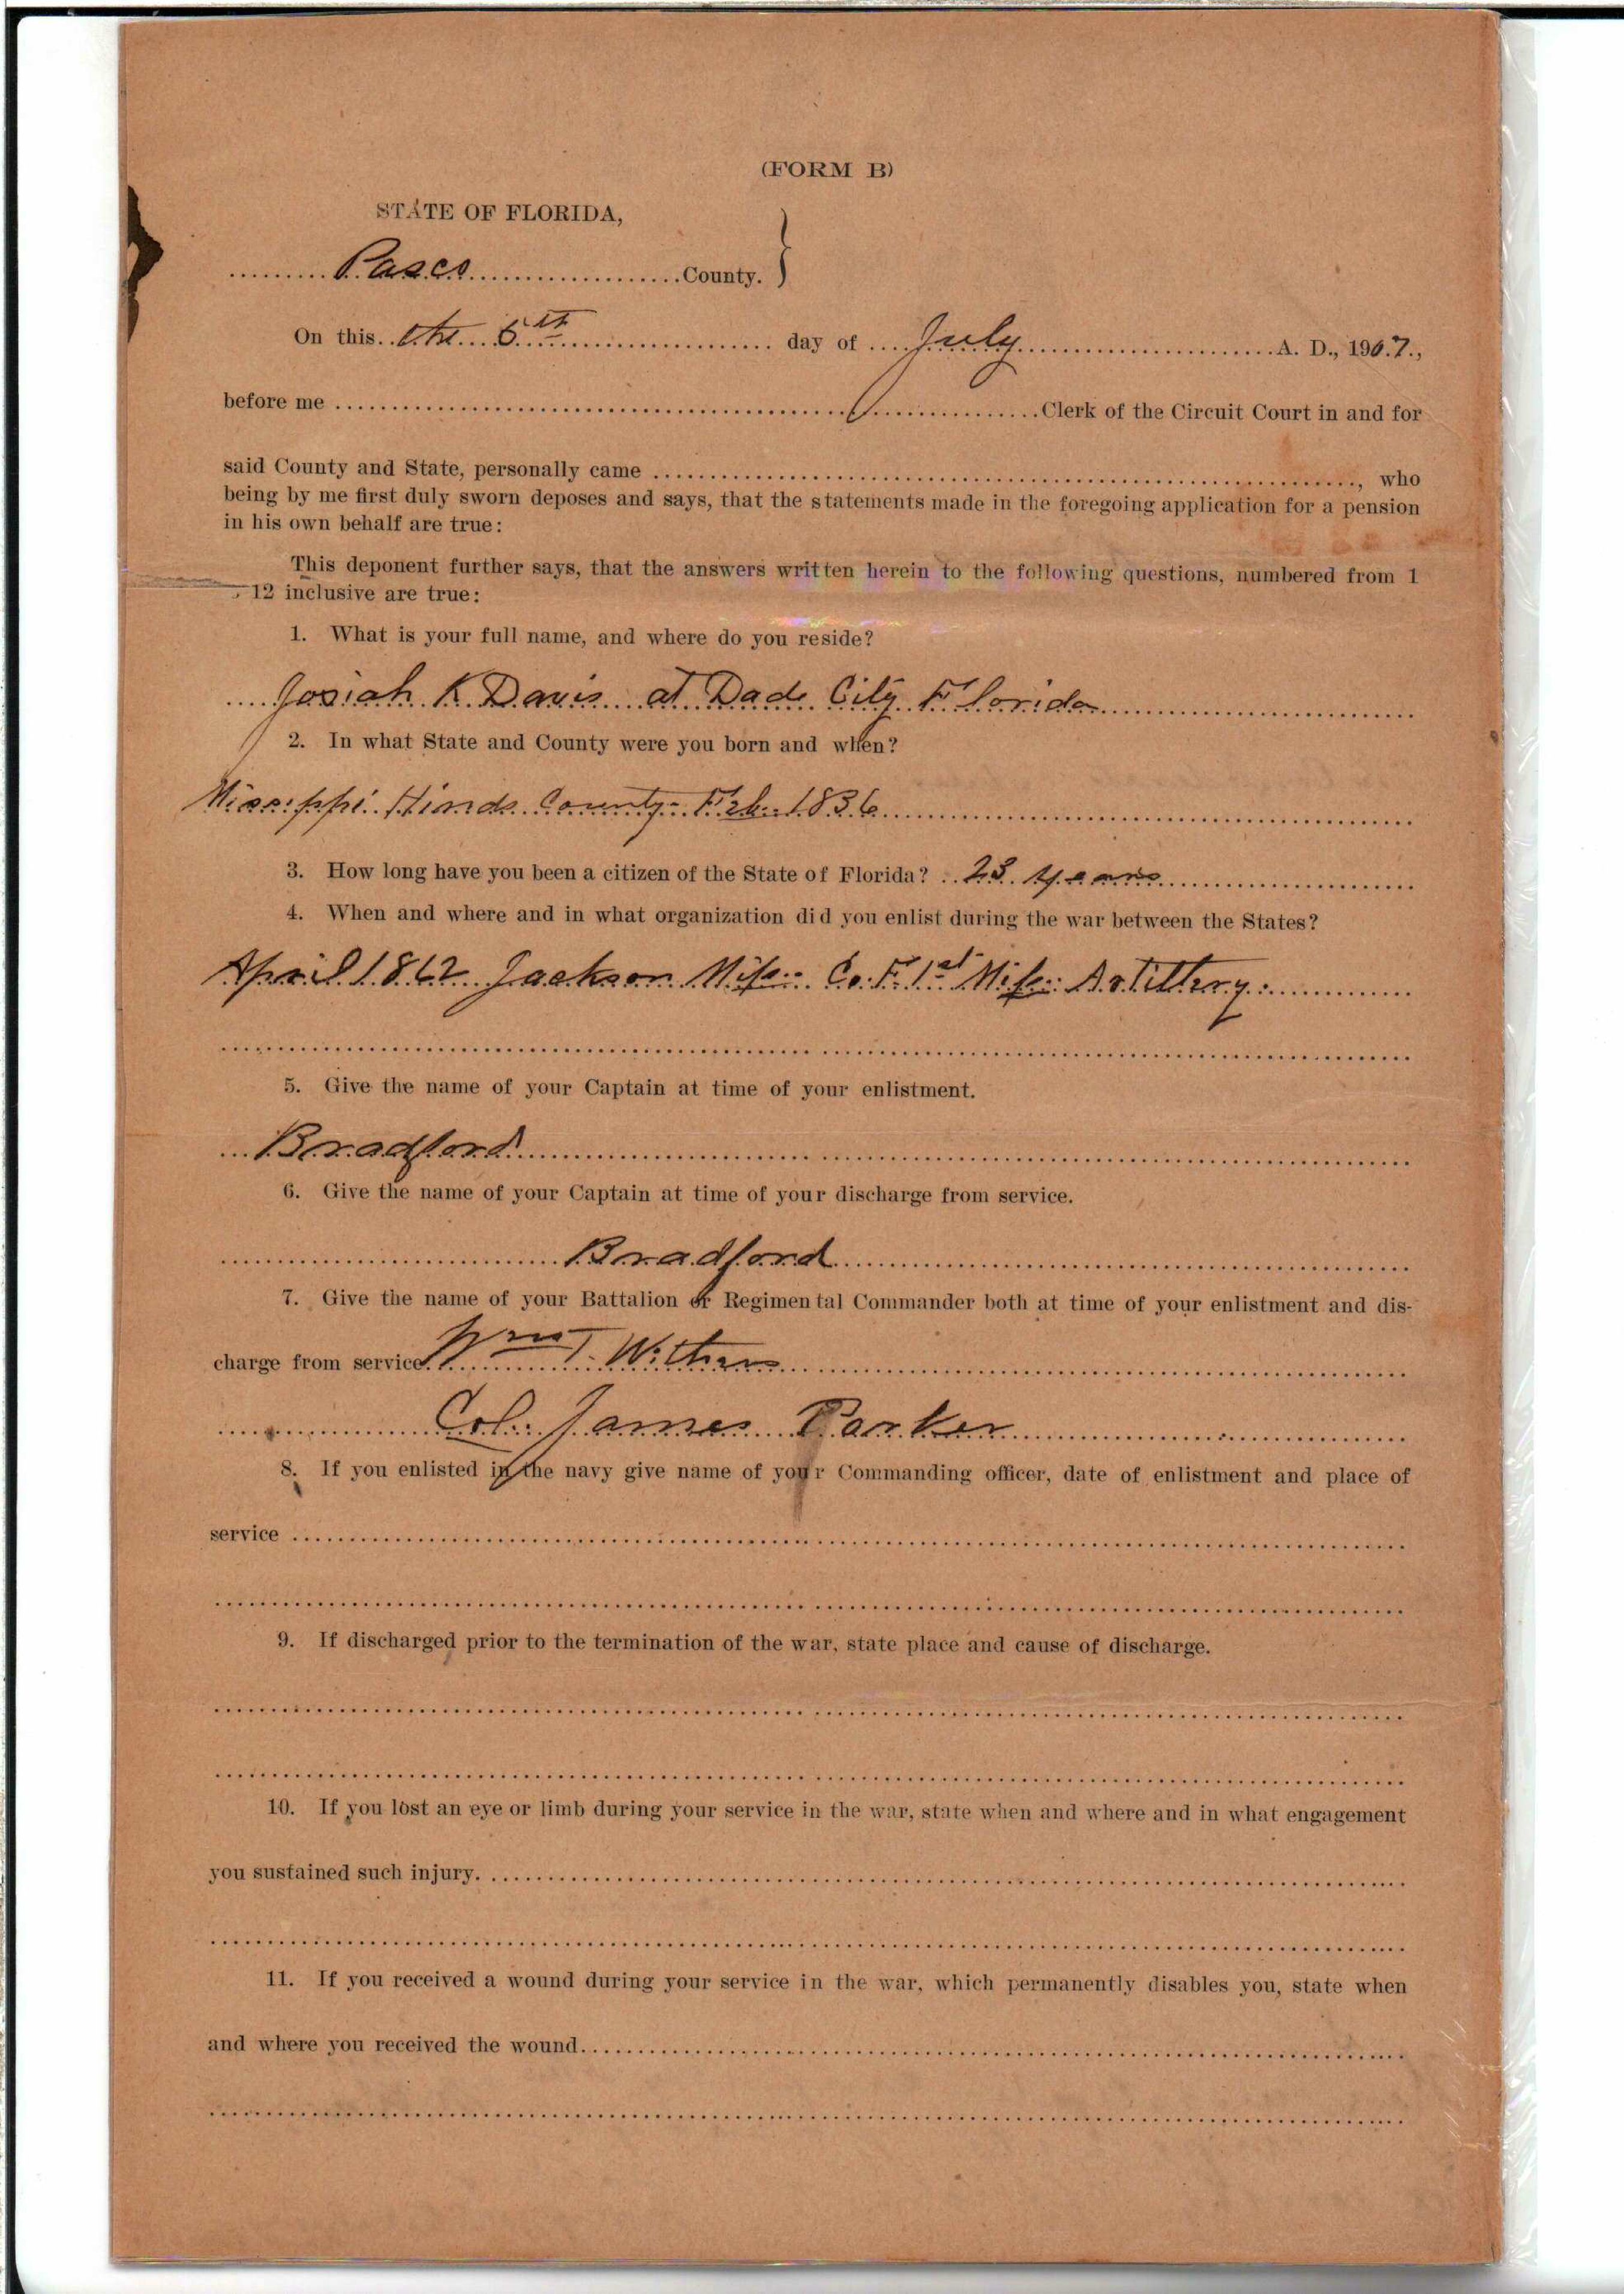 (FORM B)
STATE OF FLORIDA,
Pasco County.
On this the 5th day of July A. D., 1907.,
before me Clerk of the Circuit Court in and for
said County and State, personally came , who
being by me first duly sworn deposes and says, that the statements made in the foregoing application for a pension
in his own behalf are true:
This deponent further says, that the answers written herein to the following questions, numbered from 1
12 inclusive are true:
1. What is your full name, and where do you reside?
Josiah K Davis at Dade City Florida
2. In what State and County were you born and when?
Missippi Hinds County Feb. 1836
3. How long have you been a citizen of the State of Florida? 23 years
4. When and where and in what organization did you enlist during the war between the States?
April 1862 Jackson Miss: Co. F. 1st Miss: Artillery
5. Give the name of your Captain at time of your enlistment.
Bradford
6. Give the name of your Captain at time of your discharge from service.
Bradford
7. Give the name of your Battalion or Regimental Commander both at time of your enlistment and dis-
charge from service. Wm T. Withers
Col. James Parker
8. If you enlisted in the navy give name of your Commanding officer, date of enlistment and place of
service
9. If discharged prior to the termination of the war, state place and cause of discharge.
10. If you lost an eye or limb during your service in the war, state when and where and in what engagement
you sustained such injury.
11. If you received a wound during your service in the war, which permanently disables you, state when
and where you received the wound.